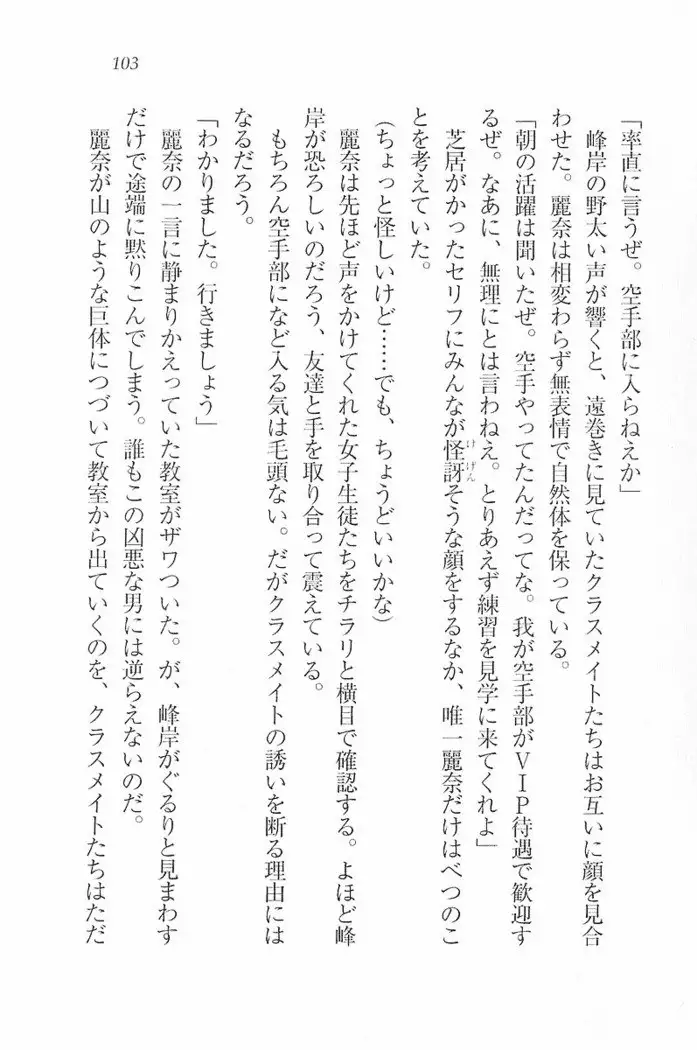 103
「率直に言うぜ。空手部に入らねえか」
峰岸の野太い声が響くと、遠巻きに見ていたクラスメイトたちはお互いに顔を見合
わせた。麗奈は相変わらず無表情で自然体を保っている。
「朝の活躍は聞いたぜ。空手やってたんだってな。我が空手部がＶＩＰ待遇で歓迎す
るぜ。なあに、無理にとは言わねえ。とりあえず練習を見学に来てくれよ」
芝居がかったセリフにみんなが怪訝そうな顔をするなか、唯一麗奈だけはべつのこ
けげん
とを考えていた。
（ちょっと怪しいけど……でも、ちょうどいいかな）
麗奈は先ほど声をかけてくれた女子生徒たちをチラリと横目で確認する。よほど峰
岸が恐ろしいのだろう、友達と手を取り合って震えている。
もちろん空手部になど入る気は毛頭ない。だがクラスメイトの誘いを断る理由には
なるだろう。
「わかりました。行きましょう」
麗奈の一言に静まりかえっていた教室がザワついた。が、峰岸がぐるりと見まわす
だけで途端に黙りこんでしまう。誰もこの凶悪な男には逆らえないのだ。
麗奈が山のような巨体につづいて教室から出ていくのを、クラスメイトたちはただ